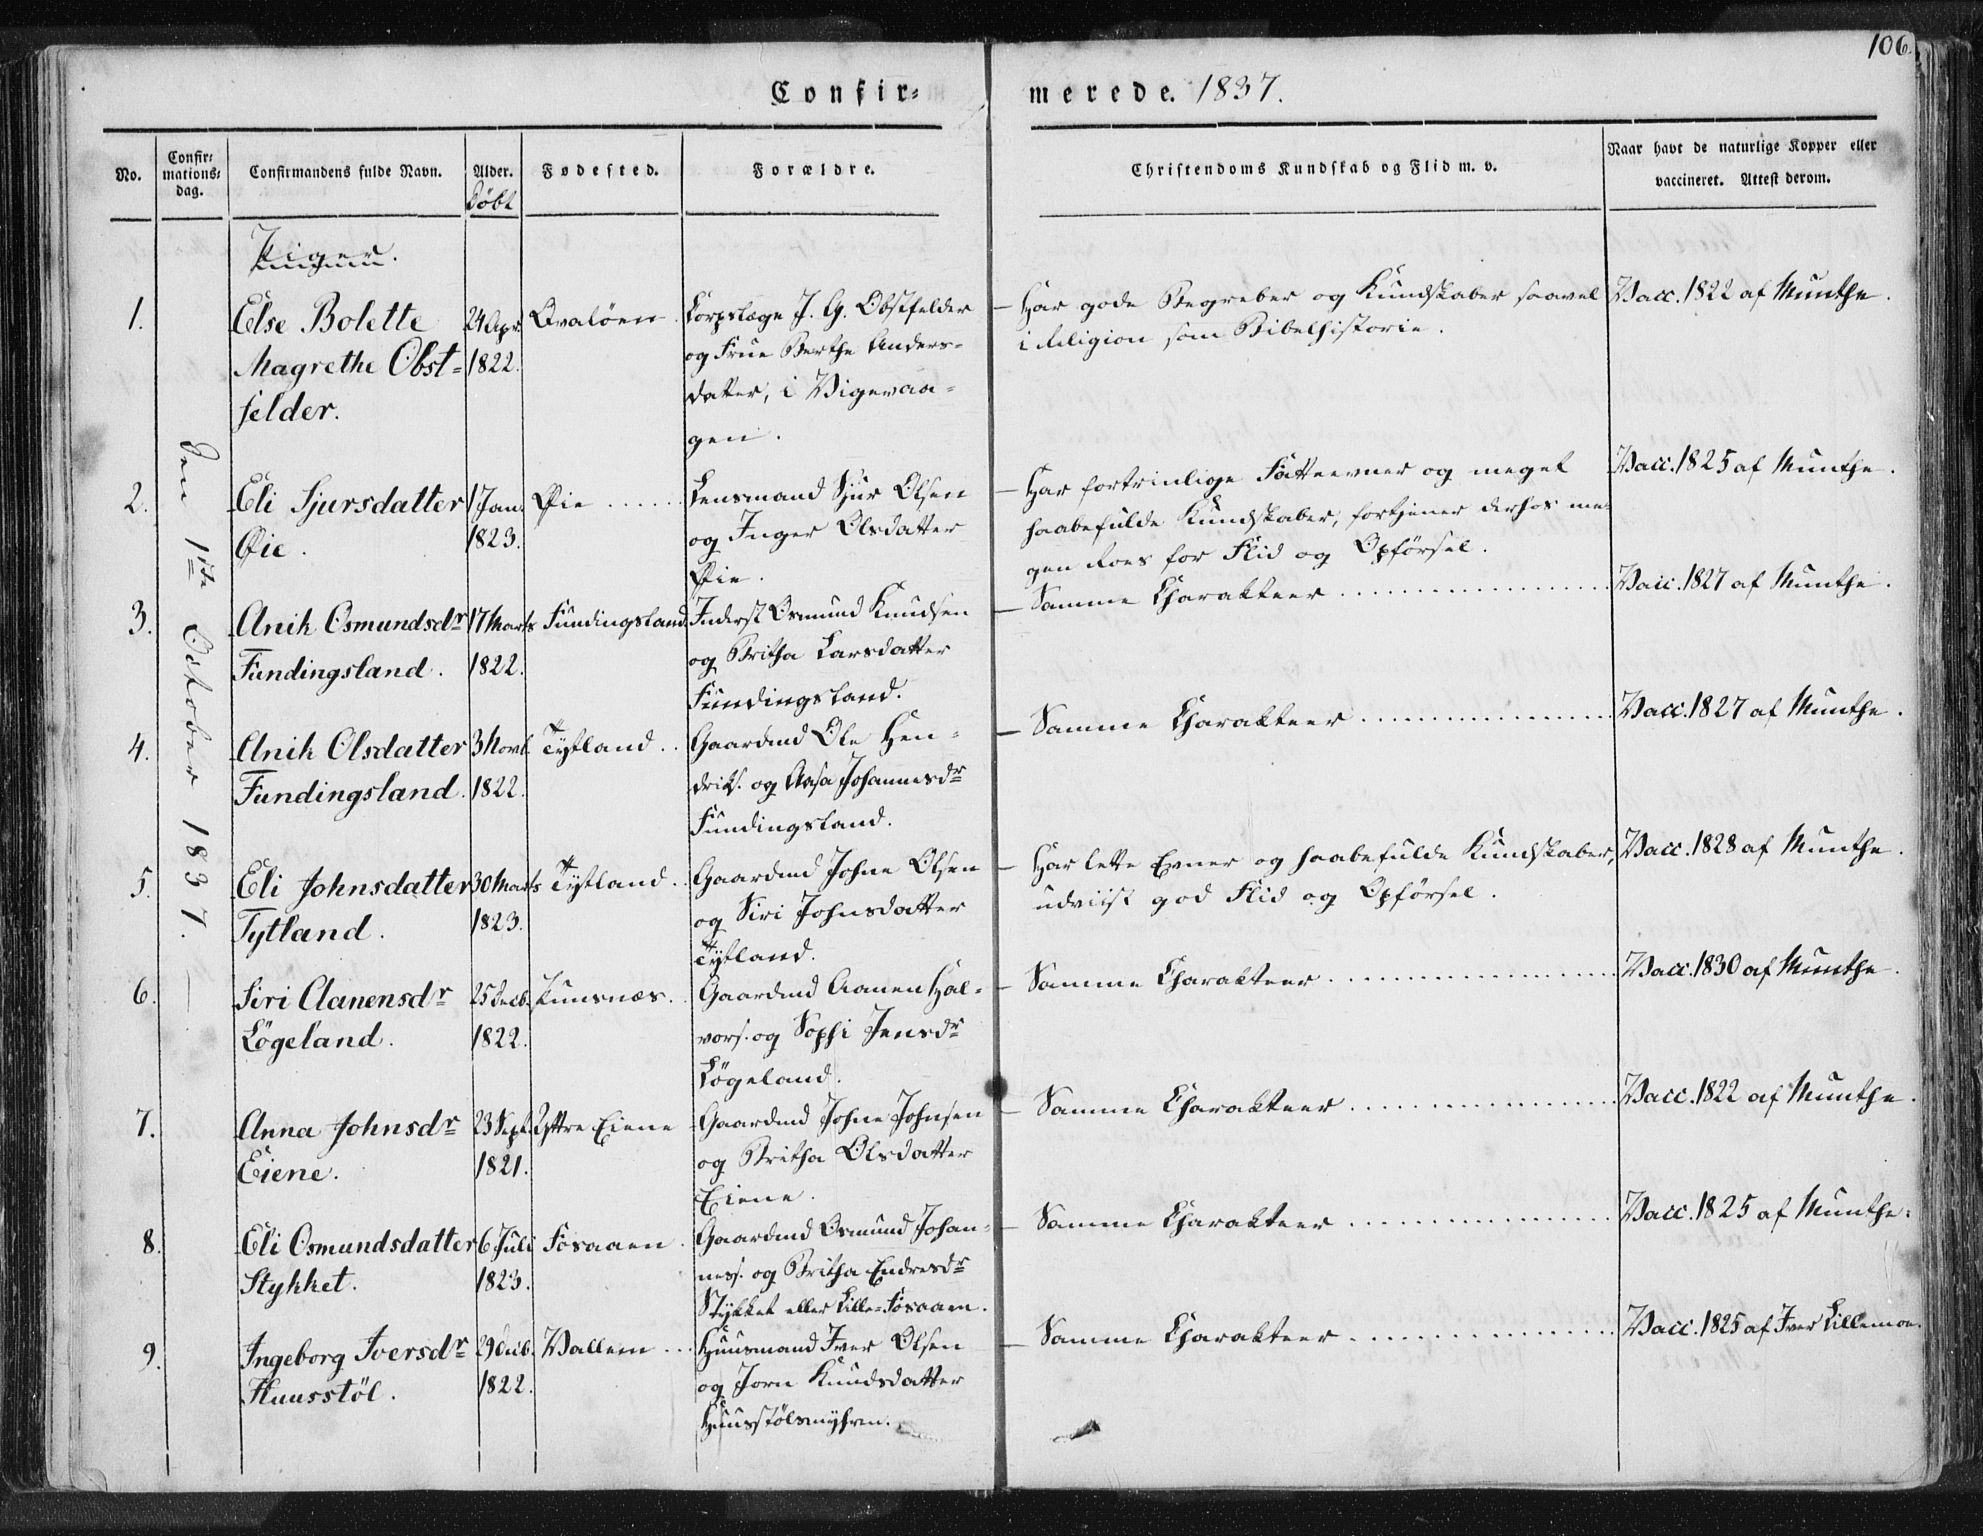 106.
Confir=
merede. 1837.
No.
Confir=
mations=
dag.
Confirmandens fulde Navn.
Alder.
Döbt
Fødested.
Forældre.
Christendoms Kundskab og Flid m. v.
Naar havt de naturlige Kopper eller
vaccineret. Attest derom.
Den 1ste October 1837. —
Piger.
1.
Else Bolette
Magrethe Obst=
felder.
24 Apr.
1822.
Ovalöen.
Corpslæge J. G. Obstfelder
og Frue Berthe Anders=
datter, i Vigevaa=
gen.
— Har gode Begreber og Kundskaber saavel
i Religion som Bibelhistorie.
Vacc. 1822 af Munthe.
2.
Eli Sjursdatter
Øie.
1 Jan.
1823.
Øie .....
Lensmand Sjur Olsen
og Inger Olsdatter
Øie.
— Har fortrinlige Fatteevner og meget
haabefulde Kundskaber, fortjener derhos me=
gen Roes for Flid og Opförsel.
Vacc. 1825 af Munthe.
3.
Anik Osmundsdr
Fundingsland.
17 Marts
1822.
Fundingsland.
Inderst Osmund Knudsen
og Britha Larsdatter
Fundingsland.
— Samme Charakteer ..................
Vacc. 1827 af Munthe.
4.
Anik Olsdatter
Fundingsland.
3 Novb.
1822.
Tytland ..
Gaardmd Ole Hen=
driks. og Aasa Johannesdr
Fundingsland.
— Samme Charakteer ..................
Vacc. 1827 af Munthe.
5.
Eli Johnsdatter
Tytland.
30 Marts
1823.
Tytland ..
Gaardmd Johne Olsen
og Siri Johnsdatter
Tytland.
— Har lette Evner og haabefulde Kundskaber,
udviist god Flid og Opförsel.
Vacc. 1828 af Munthe.
6.
Siri Aanensdr
Lögeland.
25 Decb.
1822.
Punsnæs.
Gaardmd Aanen Hal=
vors. og Sophi Jensdr
Lögeland.
— Samme Charakteer ..................
Vacc. 1830 af Munthe.
7.
Anna Johnsdr
Eiene.
23 Sept.
1821.
Yttre Eiene
Gaardmd Johne Johnsen
og Britha Olsdatter
Eiene.
— Samme Charakteer ..................
Vacc. 1822 af Munthe.
8.
Eli Osmundsdatter
Stykket.
6 Juli
1823.
Fosaaen.
Gaardmd Osmund Johan=
nes. og Britha Endresdr
Stykket eller Lille=Fosaaen.
— Samme Charakteer ..................
Vacc. 1825 af Munthe.
9.
Ingeborg Iversdr
Huusstöl.
29 Decb.
1822.
Vallem ...
Huusmand Iver Olsen
og Jorn Knudsdatter
Huusstölsmyhren.
— Samme Charakteer ..................
Vacc. 1825 af Iver Lillemoe.